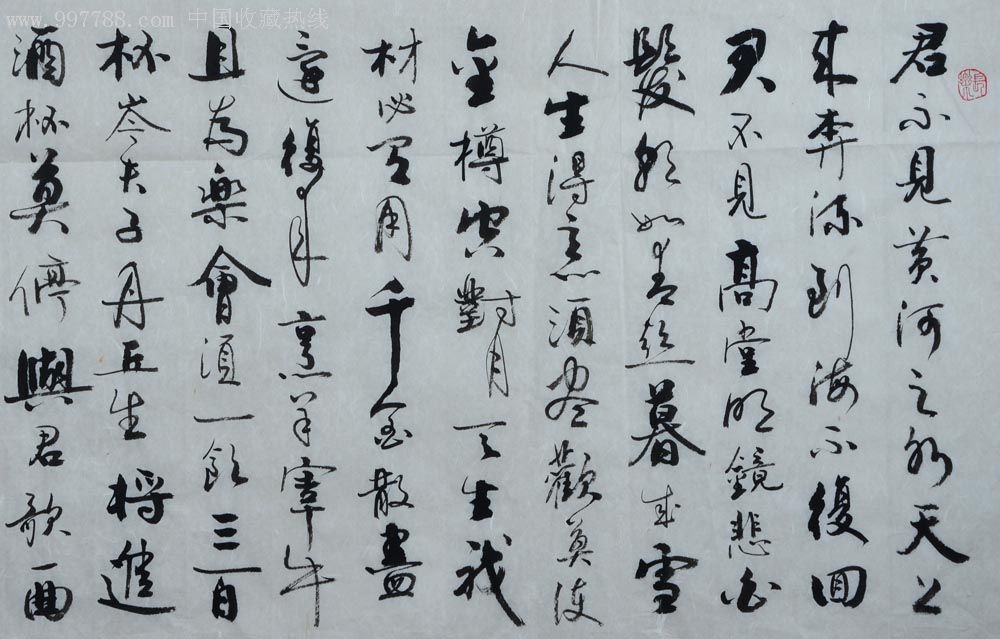 www.997788.com 中国收藏热线
君不見黄河之水天上
来奔流到海不復回
君不見高堂明鏡悲白
髮朝如青絲暮成雪
人生得意須盡歡莫使
金樽空對月天生我
材必有用千金散盡
還復来烹羊宰牛
且為樂會須一飲三百
杯岑夫子丹丘生将進
酒杯莫停與君歌一曲